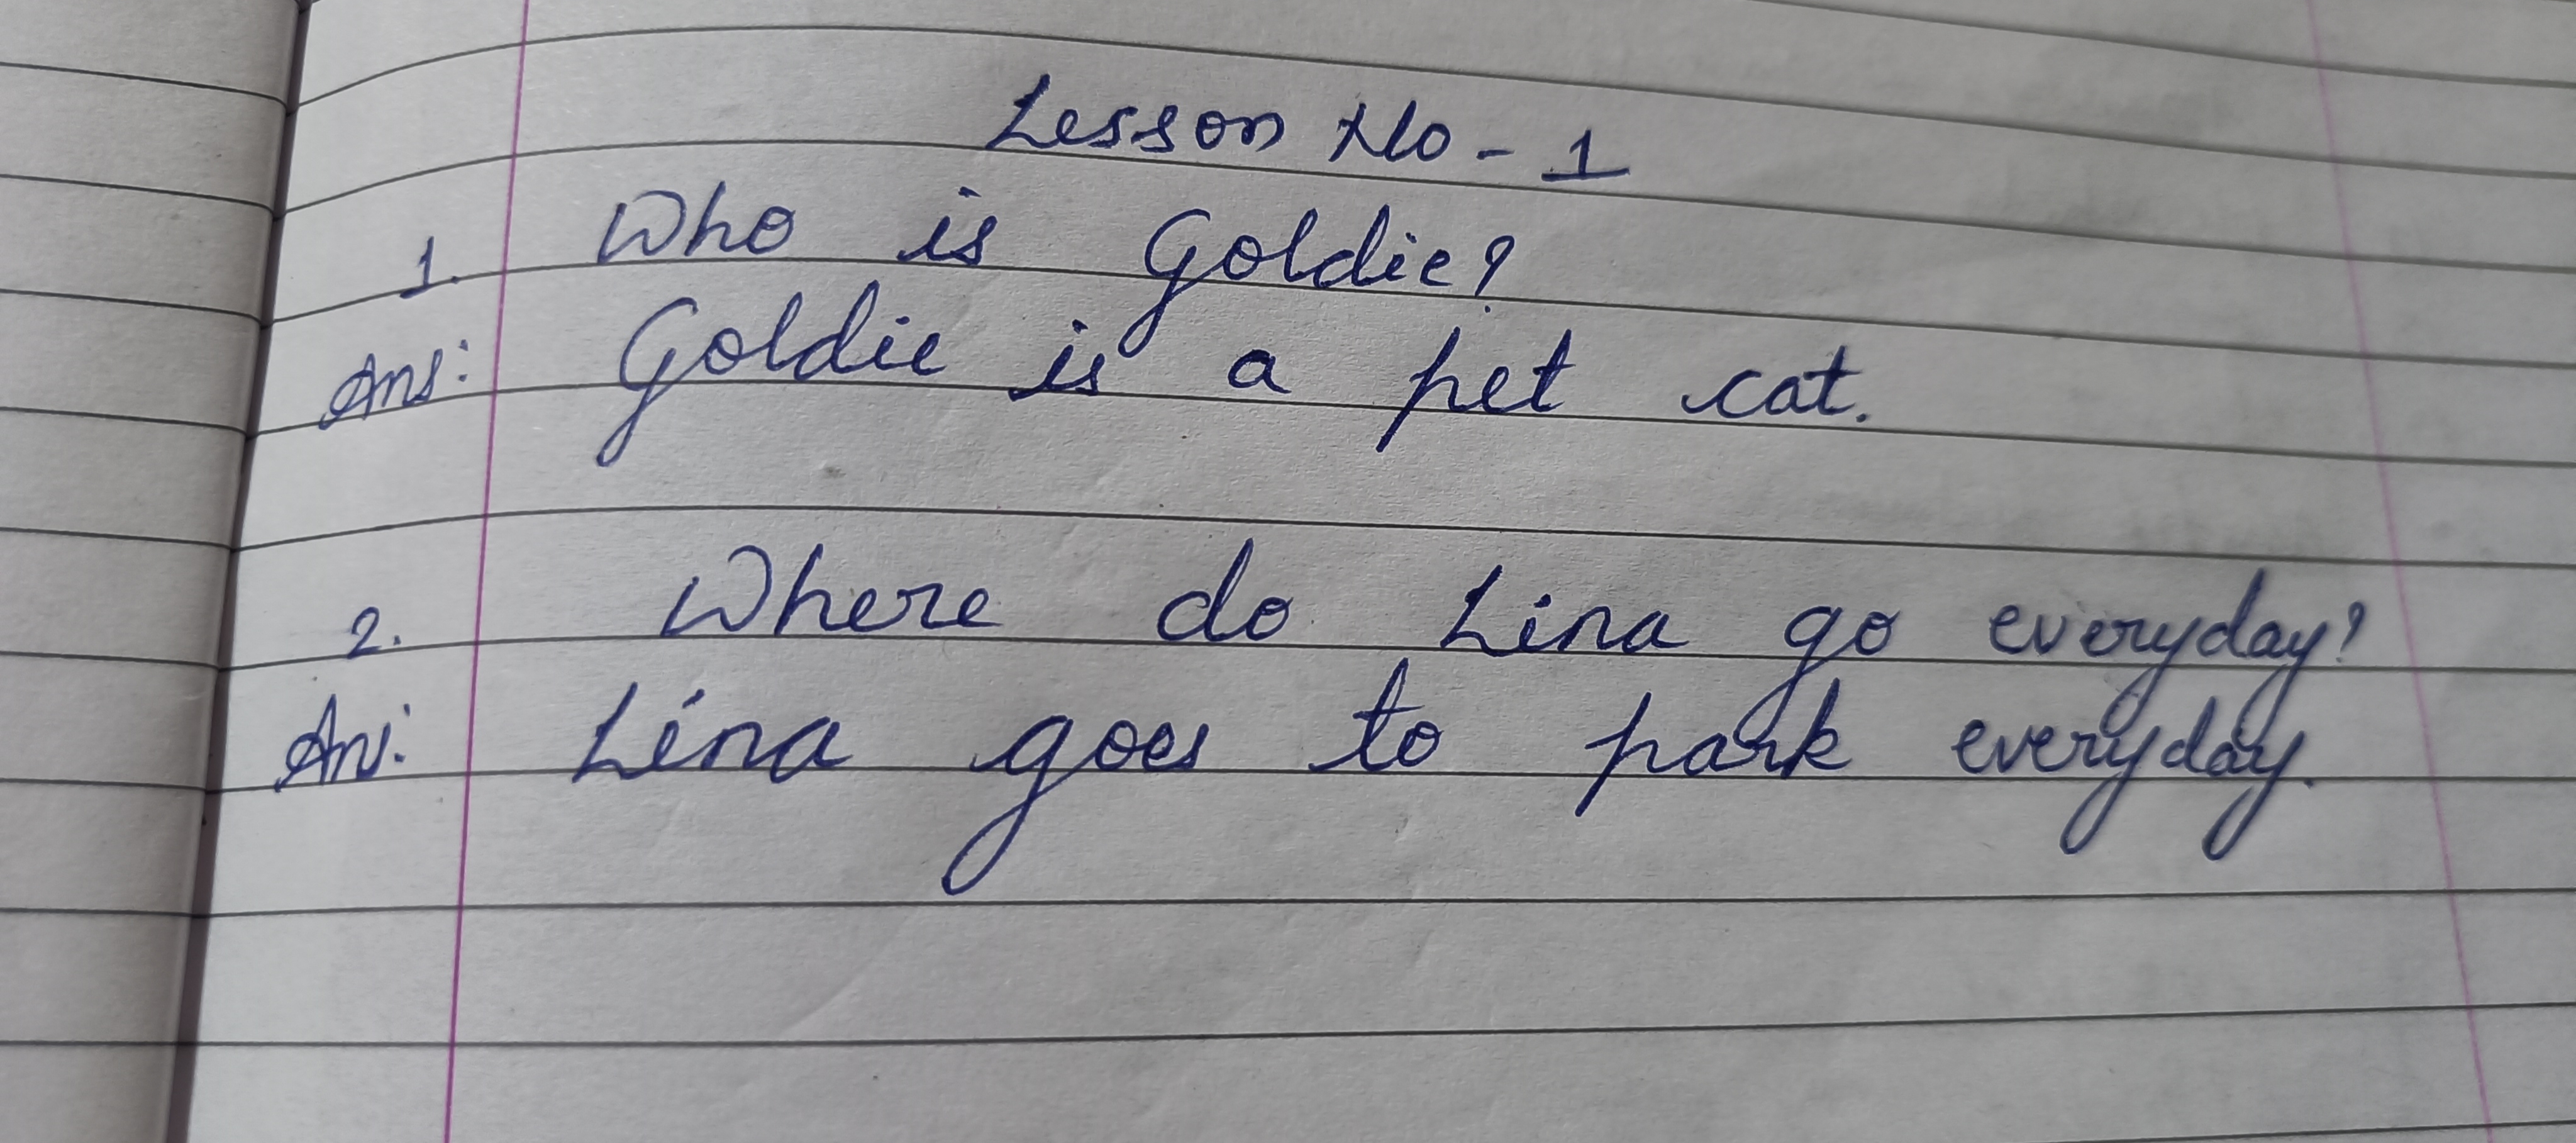 Lesson No - 1
1. Who is Goldie?
Ans: Goldie is a pet cat.
2. Where do Lina go everyday?
Ans: Lina goes to park everyday.